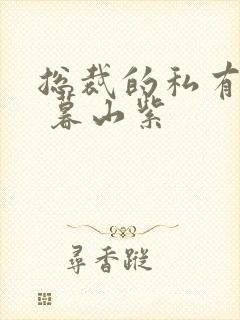 总裁的私有
暮山紫
尋香蹤